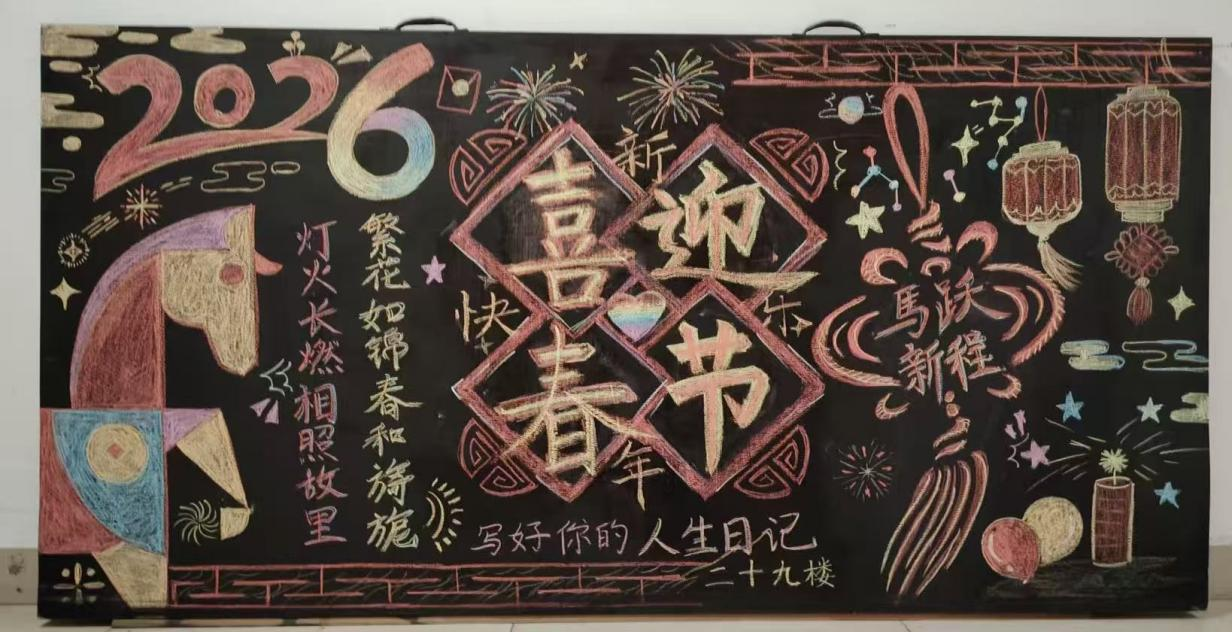 2026
繁花如锦春和旖旎
灯火长燃相照故里
喜迎
春节
新
快乐
年
馬跃
新程
写好你的人生日记
二十九楼